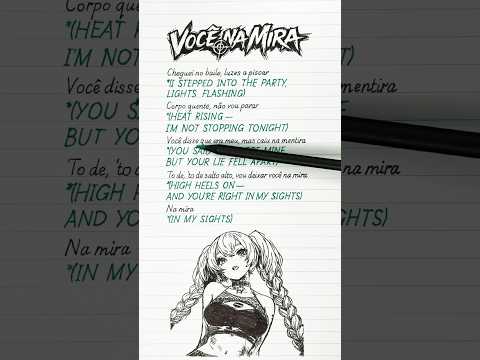 VOCÊ NA MIRA
Cheguei no baile, luzes a piscar
*(I STEPPED INTO THE PARTY,
LIGHTS FLASHING)
Corpo quente, não vou parar
*(HEAT RISING —
I'M NOT STOPPING TONIGHT)
Você disse que era meu, mas caiu na mentira
*(YOU MINE,
BUT YOUR LIE FELL APART)
To de, 'to de salto alto, vou deixar você na mira
*(HIGH HEELS ON —
AND YOU'RE RIGHT IN MY SIGHTS)
Na mira
*(IN MY SIGHTS)